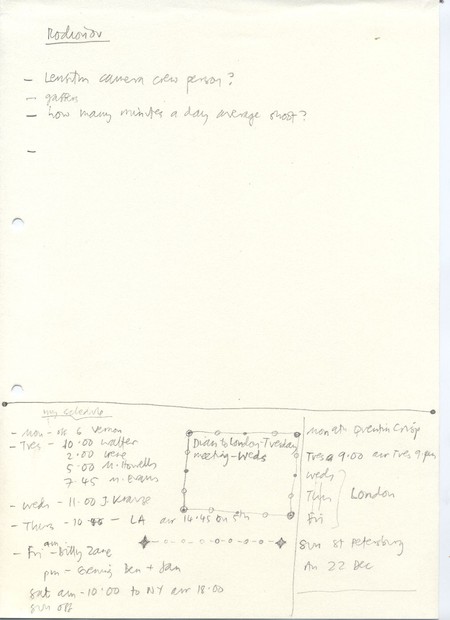 Rodionov
- camera crew person?
- gaffer
- how many minutes a day average shoot?
-
my schedule
- Mon - 6 Vernon
- Tues - 10.00 Walter
2.00 Irene
5.00 M. Howells
7.45 M. Evans
- Weds - 11.00 J. Krause
- Thurs - LA arr 14.45 on 5th
- Fri am - Billy Zane
pm - Evening Ben + Jan
Sat am - 10.00 to NY arr 18.00
Sun off
to London - Tuesday
meeting - Weds
Mon Quentin Crisp
Tues 9.00 arr Tues 9 pm
Weds
Thur
Fri
London
Sun St Petersburg
22 Dec